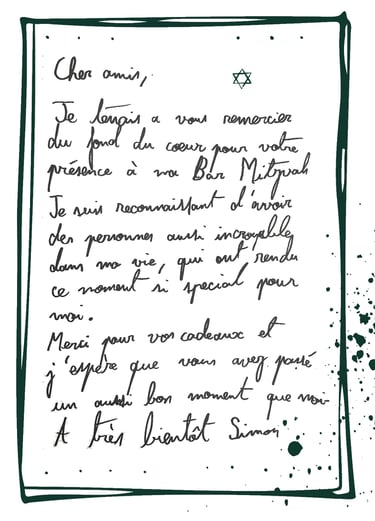 Cher amis,
Je tenais a vous remercier
du fond du coeur pour votre
présence à ma Bar Mitzvah
Je suis reconnaissant d'avoir
des personnes aussi incroyable
dans ma vie, qui ont rendu
ce moment si special pour
moi.
Merci pour vos cadeaux et
j'espère que vous avez passé
un aussi bon moment que moi
A très bientôt Simon